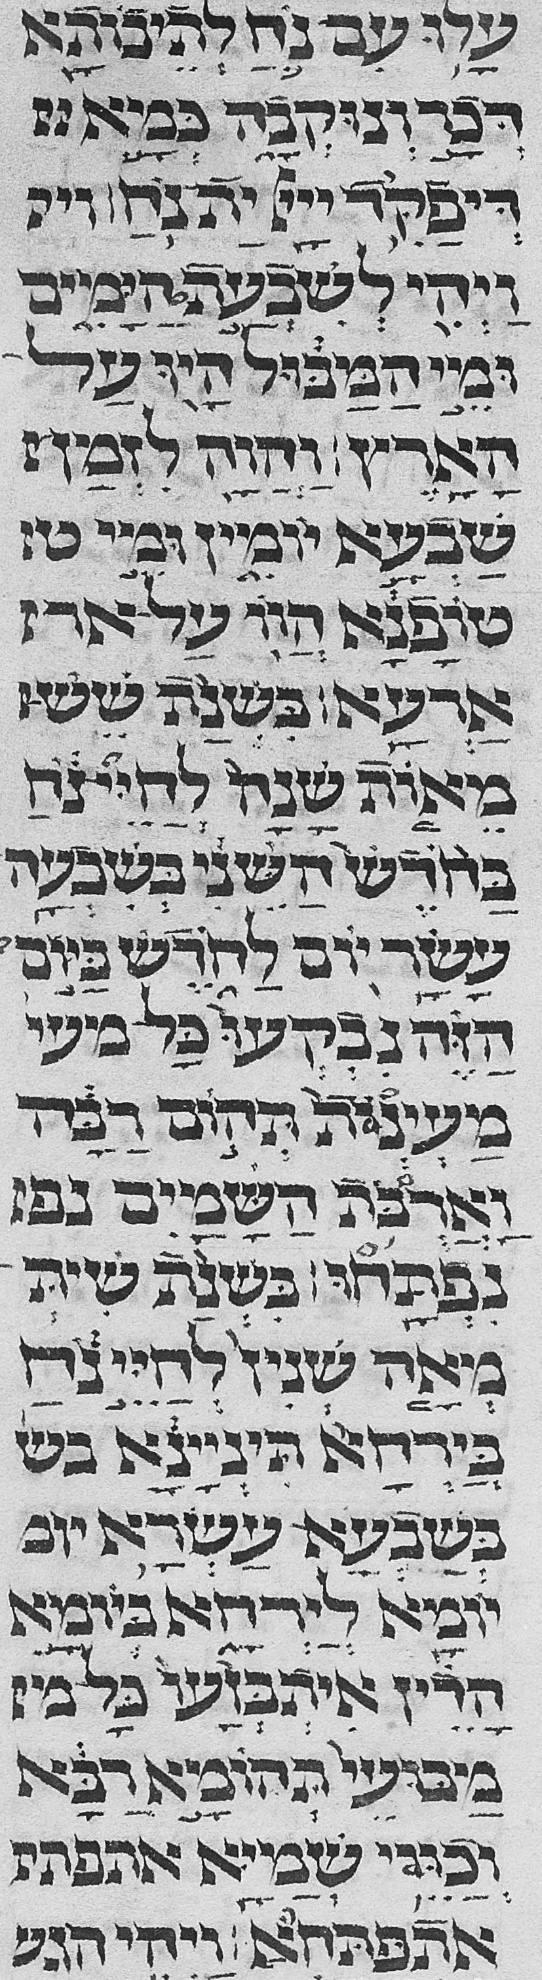 עָלוּ עִם נֹחַ לְתֵיבוֹתָא
דְּכַר וְנוּקְבָה כְּמָא
דִיפַקֵּד יְיָ יָת נֹחַ׃ ויה
וַיְהִי לְשִׁבְעַת הַיָּמִים
וּמֵי הַמַּבּוּל הָיוּ עַל
הָאָרֶץ׃ וַהֲוָה לִזְמַן
שִׁבְעָא יוֹמִין וּמֵי טו
טוֹפָנָא הֲווֹ עַל אר
אַרְעָא׃ בִּשְׁנַת שֵׁשׁ
מֵאוֹת שָׁנָה לְחַיֵּי נֹחַ
בַּחֹדֶשׁ הַשֵּׁנִי בְּשִׁבְעָה
עָשָׂר יוֹם לַחֹדֶשׁ בַּיּוֹם
הַזֶּה נִבְקְעוּ כָּל מעי
מַעְיְנוֹת תְּהוֹם רַבָּה
וַאֲרֻבֹּת הַשָּׁמַיִם נפ
נִפְתָּחוּ׃ בִּשְׁנַת שִׁית
מְאָה שְׁנִין לְחַיֵּי נֹחַ
בְּיַרְחָא תִּינְיָינָא בש
בְּשִׁבְעָא עַשְׂרָא יום
יוֹמָא לְיַרְחָא בְּיוֹמָא
הָדֵין אִיתְבְּזָעוּ כָּל מי
מַבּוּעֵי תְּהוֹמָא רַבָּא
וְכַוֵּי שְׁמַיָּא אתפתח
אִתְפַּתָּחָא׃ ויהי הגש